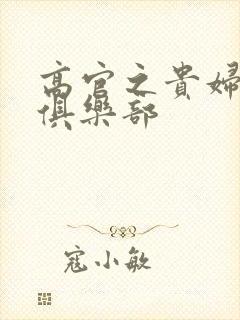 高官之貴婦
俱樂部
寇小敏